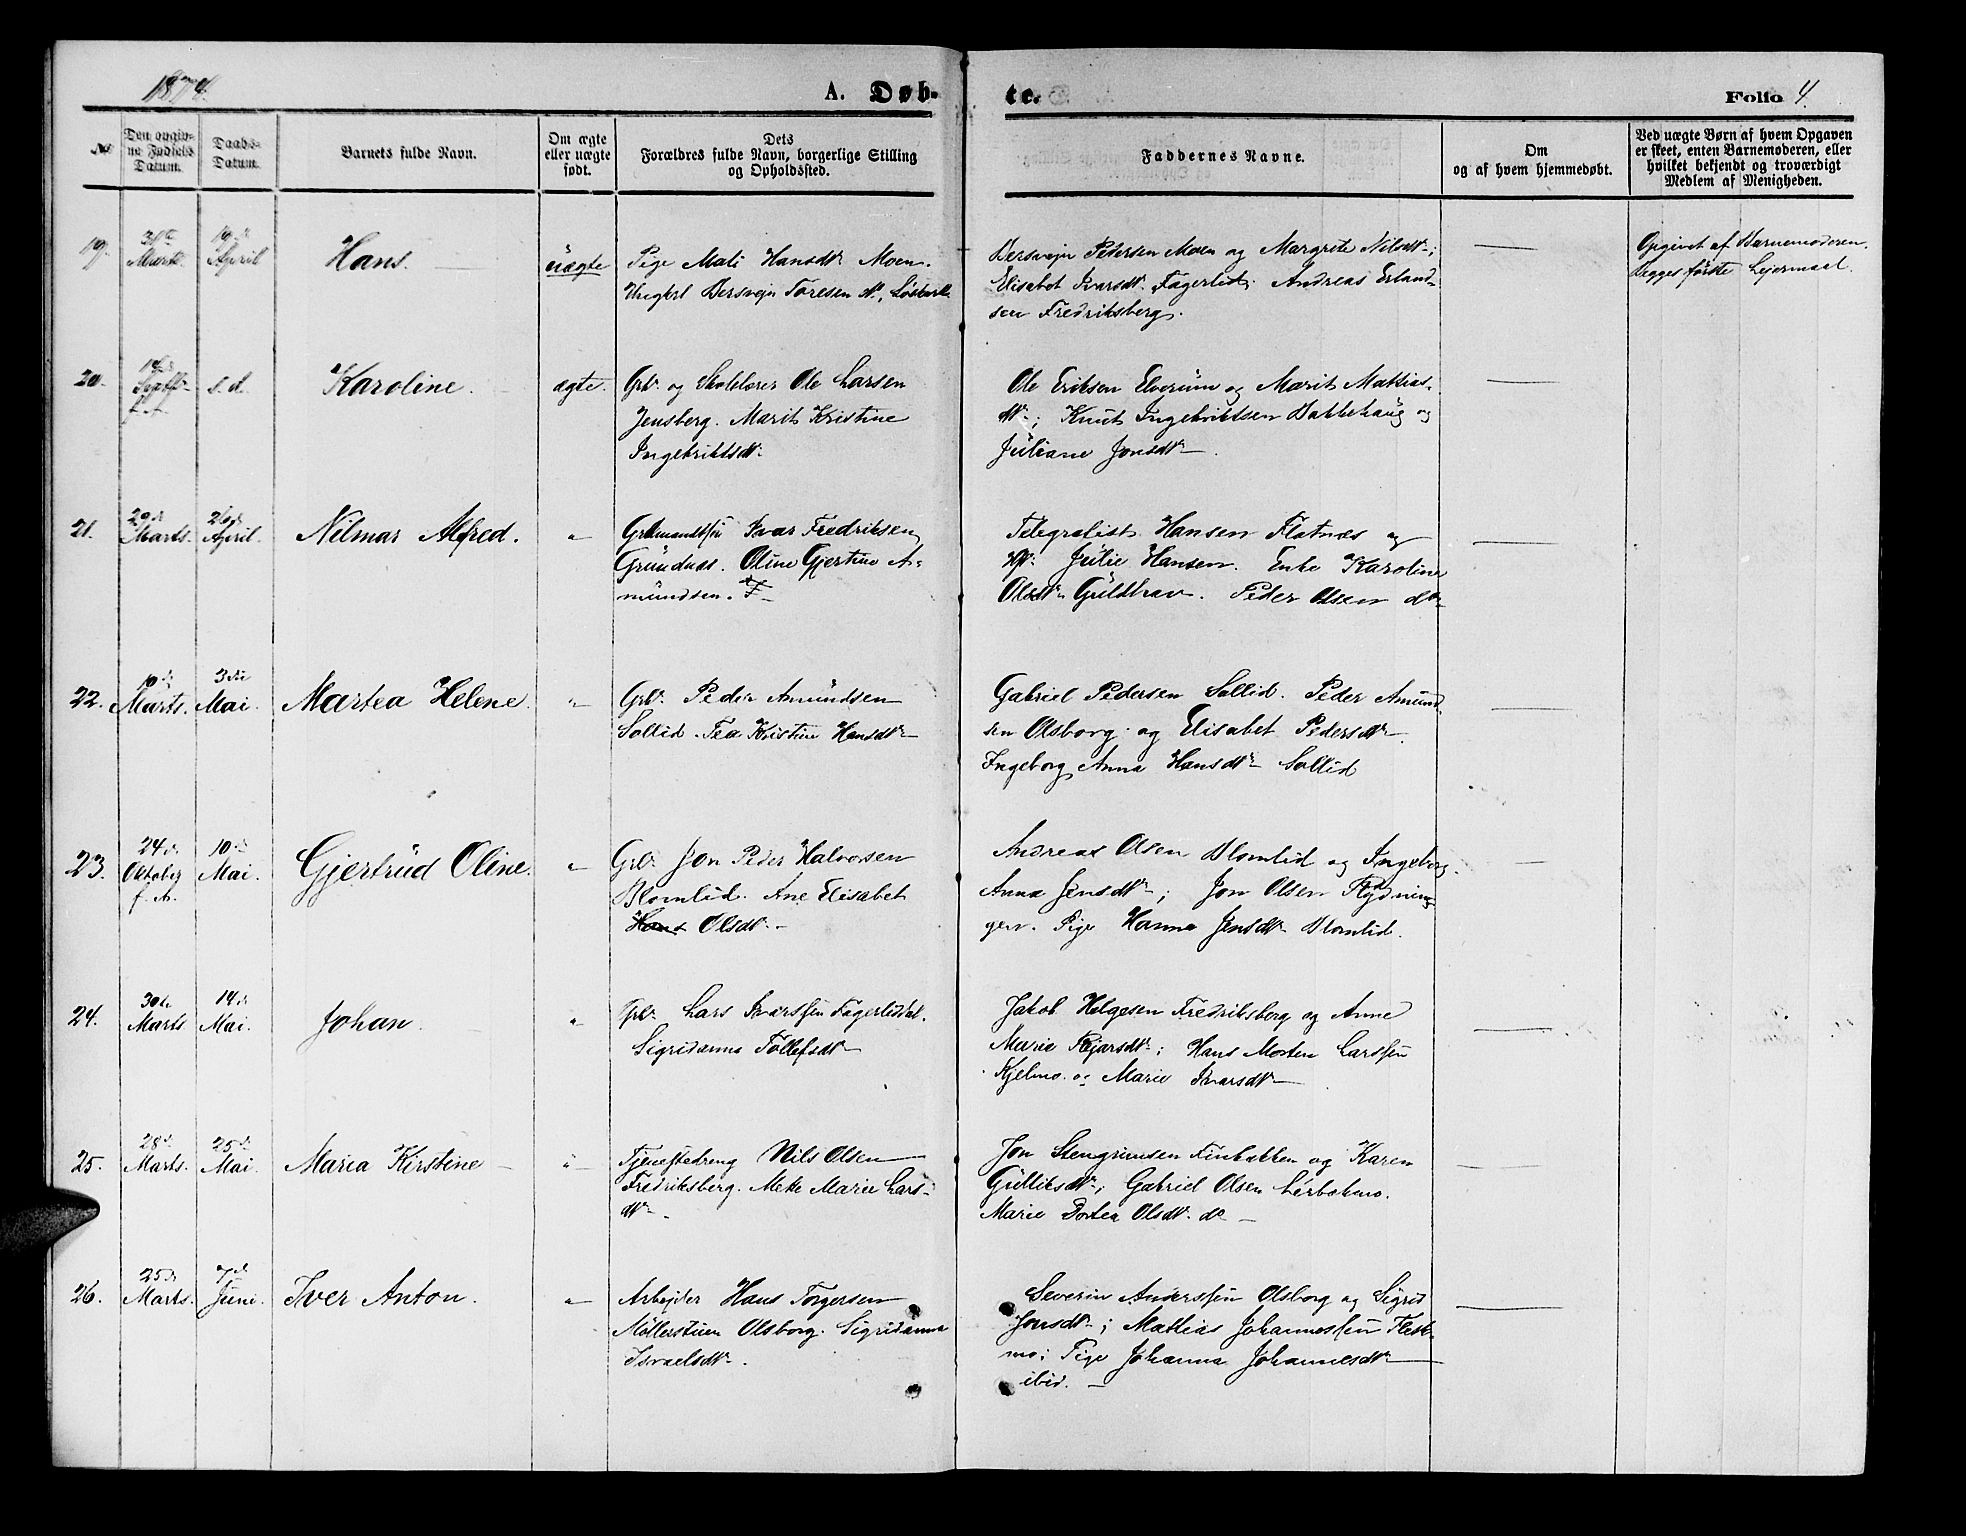 1874.
A. Døb-
te.
Folio 4.
No
Den opgiv-
ne Fødsels
Datum.
Daabs-
Datum.
Barnets fulde Navn.
Om ægte
eller uægte
født.
Dets
Forældres fulde Navn, borgerlige Stilling
og Opholdssted.
Faddernes Navne.
Om
og af hvem hjemmedøbt.
Ved uægte Børn af hvem Opgaven
er skeet, enten Barnemoderen, eller
hvilket bekjendt og troværdigt
Medlem af Menigheden.
19.
Marts.
19de
April
Hans.
üægte
Pige Mali Hansdtr Moen.
Ungkrl Bersvejn Toresen
Bersvejn Petersen Moen og Margrete Nilsdtr;
Elisabet Ivarsdtr. Fagerlid; Andreas Erland-
sen Fredriksberg.
Opgivet af Barnemoderen.
Begges første Lejermaal.
20.
Septbr
f. A.
s. d.
Karoline.
ægte.
Grbr og Skolelærer Ole Larsen
Jensberg. Marit Kristine
Ingebriktsdtr
Ole Eriksen Elverüm og Marit Mattias-
dtr; Knut Ingebriktsen Bakkehaüg og
Jüliane Jonsdtr.
21.
29de
Marts.
26de
April.
Nilmar Alfred.
"
Ivar Fredriksen
Gründnæs. Oline Gjertine A-
mündsen.
Telegrafist Hansen Flatnæs og
Jülie Hansen. Enke Karoline
Olsdtr Güldhav. Peder Olsen do
22.
10de
Marts.
3die
Mai.
Martea Helene.
"
Grbr. Peder Amündsen
Sollid. Tea Kristine Hansdtr
Gabriel Pedersen Sollid. Peder Amünd-
sen Olsborg og Elisabet Pedersdtr.
Ingeborg Anna Hansdtr Sollid
23.
24de
Oktober
f. A.
10de
Mai.
Gjertrüd Oline.
"
Grbr Jon Peder Halvorsen
Blomlid. Ane Elisabet
Olsdtr.
Andreas Olsen Blomlid og Ingeborg
Anna Jensdtr; Jon Olsen Flydnin-
gen. Pige Hanna Jensdtr Blomlid.
24.
30de
Marts
14de
Mai.
Johan.
"
Grbr Lars Ivarssen Fagerliddal.
Sigridanna Tollefsdtr
Jakob Helgesen Fredriksberg og Anne
Marie Pejarsdtr; Hans Morten Larssen
Kjelmo og Marie Ivarsdtr
25.
28de
Marts.
25de
Mai.
Maria Kirstine
"
Tjenestedreng Nils Olsen
Fredriksberg. Mette Marie Lars-
dtr.
Jon Stengrimsen Finbakken og Karen
Gülliksdtr; Gabriel Olsen Lérbakmo.
Marie Dortea Olsdtr. do
26.
25de
Marts.
7de
Juni.
Iver Anton.
"
Arbejder Hans Torgersen
Møllerstüen Olsborg. Sigridanna
Israelsdtr.
Severin Anderssen Olsborg og Sigrid
Jonsdtr; Mattias Johannessen Flesk-
mo; Pige Johanna Johannesdtr
ibid.